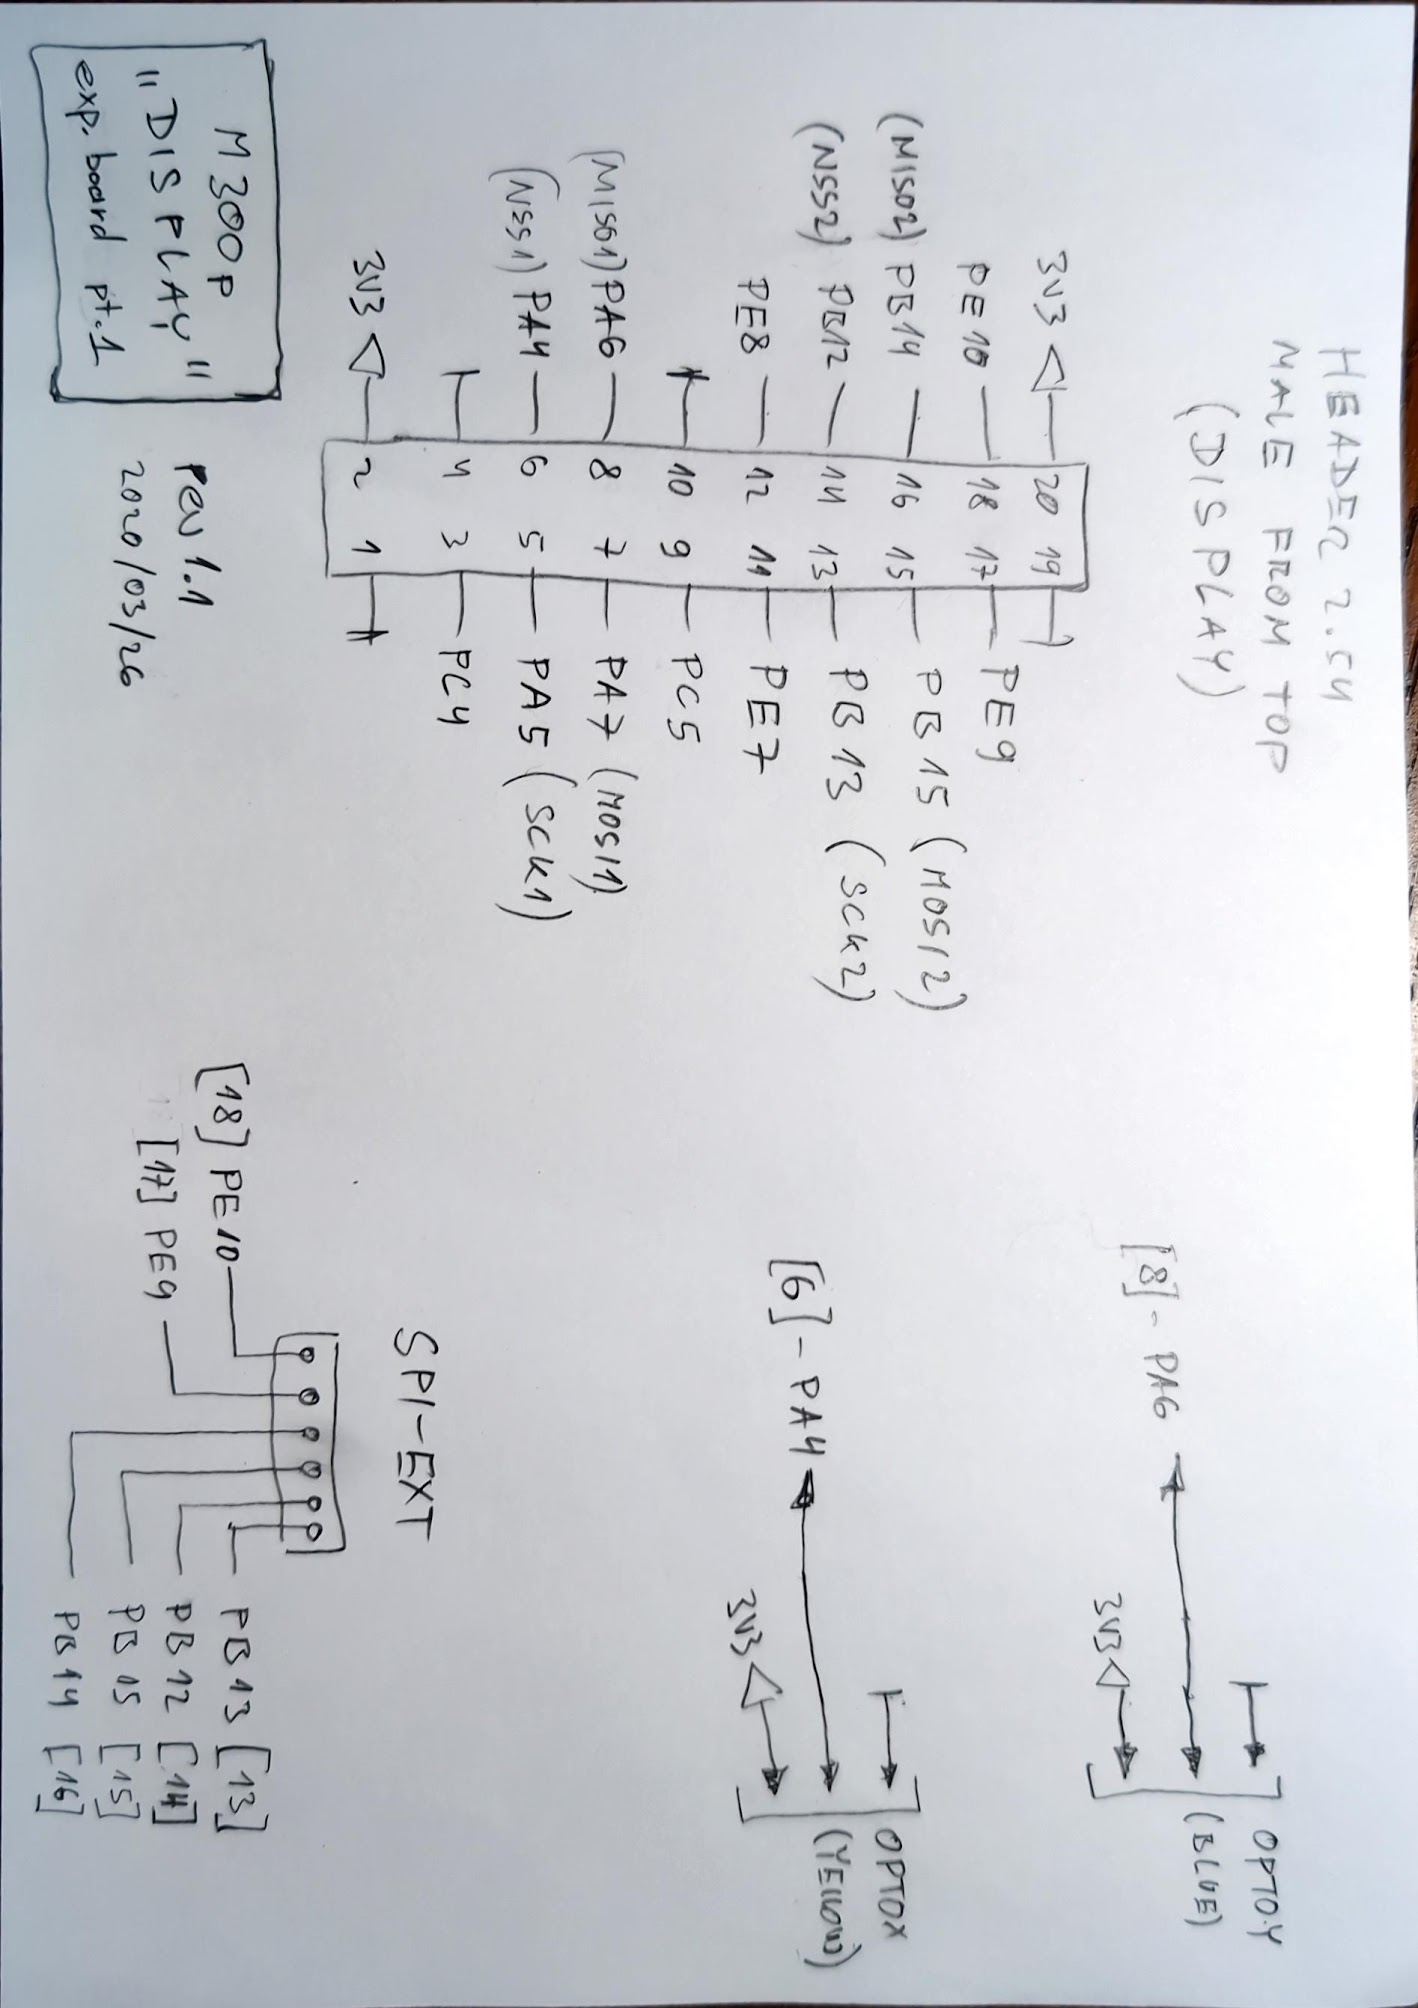 HEADER 2.54
MALE FROM TOP
(DISPLAY)
3V3 20 19
PE10 18 17 PE9
(MISO2) PB14 16 15 PB15 (MOSI2)
(NSS2) PB12 14 13 PB13 (SCK2)
PE8 12 11 PE7
10 9 PC5
(MISO1) PA6 8 7 PA7 (MOSI1)
(NSS1) PA4 6 5 PA5 (SCK1)
4 3 PC4
3V3 2 1
M300p
"DISPLAY"
exp. board pt.1
rev 1.1
2020/03/26
OPTOY
(BLUE)
[8] - PA6
3V3
OPTOX
(YELLOW)
[6] - PA4
3V3
SPI-EXT
[18] PE10
[17] PE9
PB13 [13]
PB12 [14]
PB15 [15]
PB14 [16]